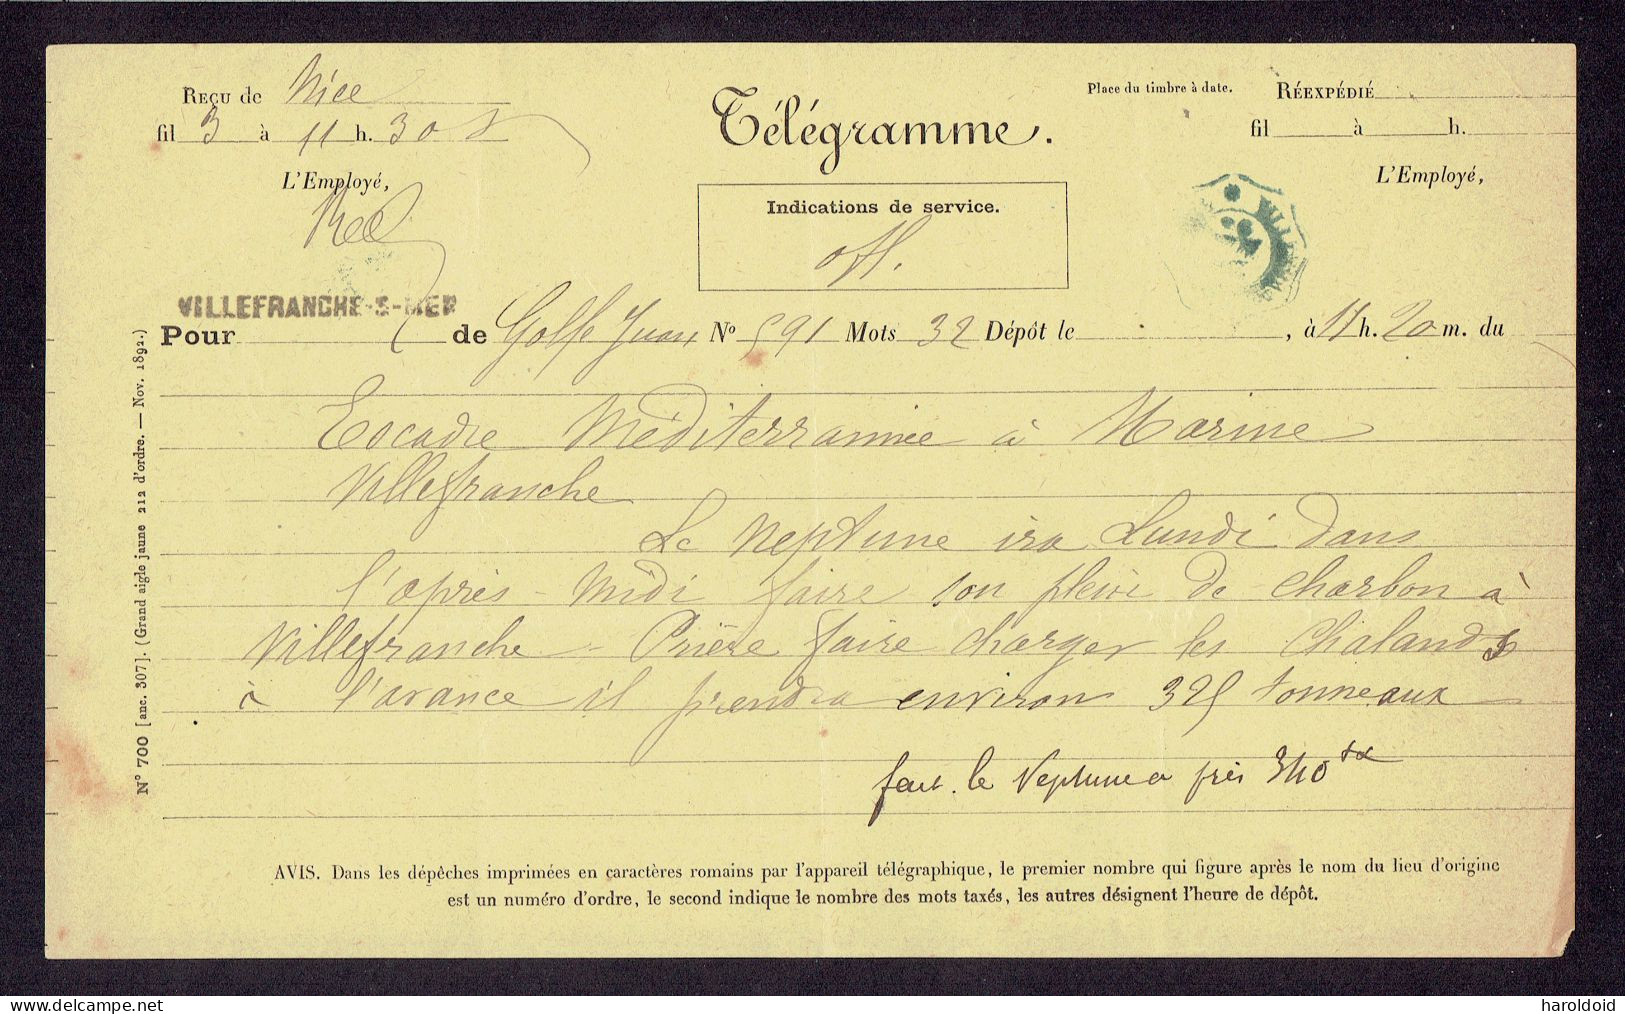 Reçu de Nice
fil 3 à 11 h. 30
L'Employé,
Télégramme.
Indications de service.
off.
Place du timbre à date.
Réexpédié
fil à h.
L'Employé,
VILLEFRANCHE-S-MER
Pour de Golfe Juan N° 591 Mots 32 Dépôt le , à 11 h. 20 m. du
Escadre Méditerrannée à Marine
Villefranche
Le Neptune ira Lundi dans
l'après-midi faire son plein de charbon à
Villefranche - Prière faire charger les chalands
à l'avance il prendra environ 325 tonneaux
fait. le Neptune a pris 340 tx
AVIS. Dans les dépêches imprimées en caractères romains par l'appareil télégraphique, le premier nombre qui figure après le nom du lieu d'origine
est un numéro d'ordre, le second indique le nombre des mots taxés, les autres désignent l'heure de dépôt.
N° 700 [anc. 307]. (Grand aigle jaune 212 d'ordre. — Nov. 1892.)
© delcampe.net
haroldoid